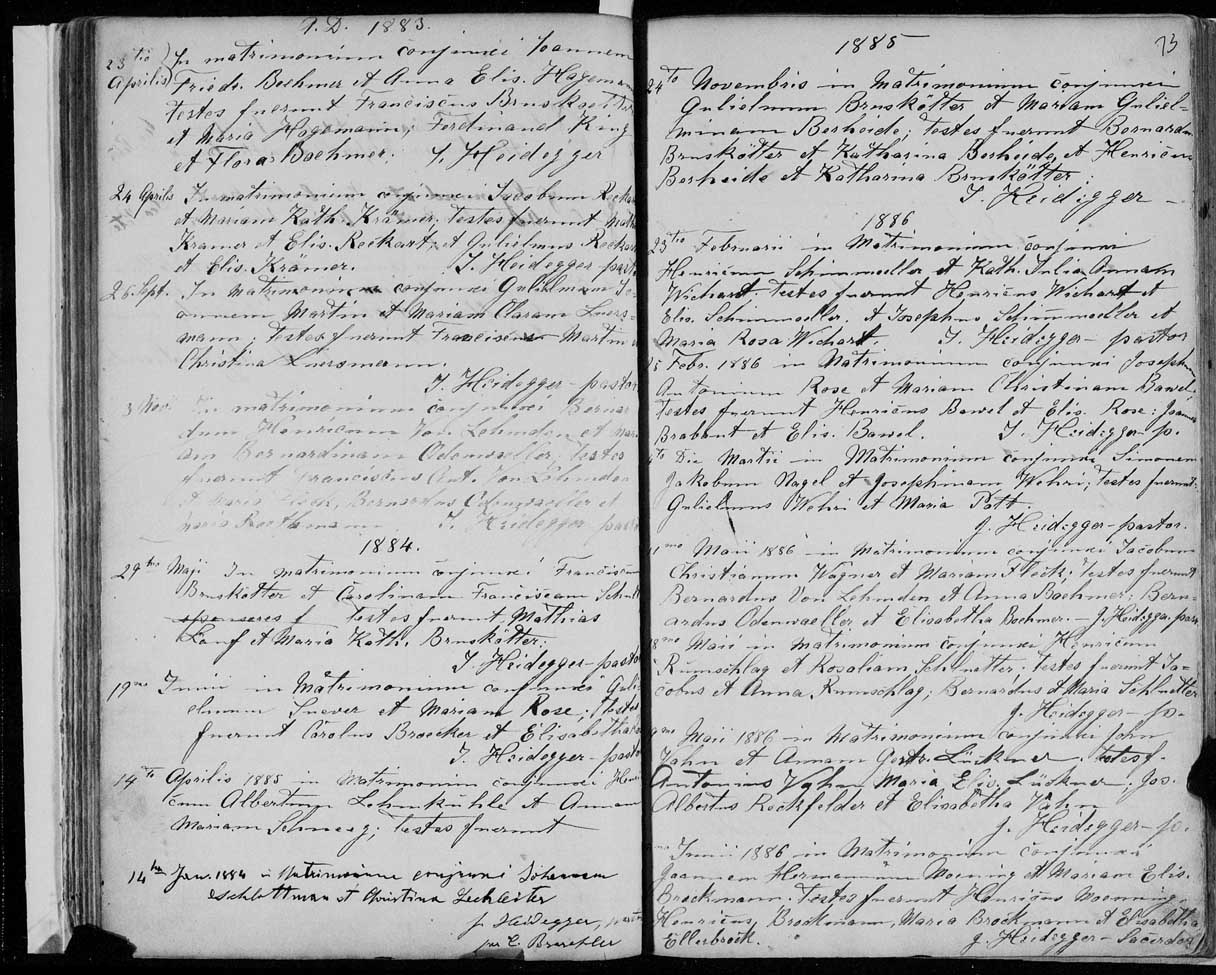 A.D. 1883.
23tio In matrimonium conjunxi Joannem
Aprilis Friedr. Boehmer et Anna Elis. Hageman
testes fuerunt Franciscus Brnskoetter
et Maria Hagemann; Ferdinand King
et Flora Boehmer. J. Heidegger
24 Aprilis In matrimonium conjunxi Jacobum
et Mariam Kath. Krämer. Testes fuerunt
Kramer et Elis. Reckart, et Gulielmus
et Elis. Krämer. J. Heidegger past
26 Sept. In matrimonium conjunxi Gulielmum Jo-
annem Martin et Mariam Claram Luers-
mann; Testes fuerunt Franciscus Martin
Christina Luersmann.
J. Heidegger - pastor
3 Nov. In matrimonium conjunxi Bernar-
dum Henricum Von Lehmden et Mari-
am Bernardinam Odenwaeller, Testes
fuerunt Franciscus Ant. Von Lehmden
et Maria Bernardus Odenwaeller et
Maria J. Heidegger - pastor
1884.
29tio Maji In matrimonium conjunxi Franciscum
Brnskötter et Carolinam Franciscam
testes fuerunt Mathias
Lauf et Maria Kath. Brnskötter.
J. Heidegger - pasto
19no Junii in Matrimonium conjunxi Guli-
elmum Suever et Mariam Rose; Testes
fuerunt Carolus Broecker et Elisabetha
J. Heidegger - pasto
14to Aprilis 1885 in Matrimonium conjunxi Henri-
cum Albertum Lehmkühle et Annam
Mariam Schneeg; Testes fuerunt
14ta Jan. 1884 in Matrimonium conjunxi Johannem
Schlottman et Christina Lechleiter
J. Heidegger, pastor
per C. Brueckler
1885 73
24to Novembris in Matrimonium conjunxi
Gulielmum Brnskötter et Mariam Guliel-
minam Berheide; Testes fuerunt Bernardus
Brnskötter et Katharina Berheide et Henricus
Berheide et Katharina Brnskötter.
J. Heidegger -
1886
23tio Februarii in Matrimonium conjunxi
Henricum Schimmoeller et Kath. Julia Annam
Wichart. Testes fuerunt Henricus Wichart et
Elis. Schimmoeller. et Josephus Schimmoeller et
Maria Rosa Wichart. J. Heidegger - pastor
25 Febr. 1886 in Matrimonium conjunxi Joseph
Antonium Rose et Mariam Christinam Bawel.
Testes fuerunt Henricus Bawel et Elis. Rose; Joannes
Brabant et Elis. Bawel. J. Heidegger - p.
4to Die Martii in Matrimonium conjunxi Simonem
Jakobum Nagel et Josephinam Wehri; Testes fuerunt:
Gulielmus Wehri et Maria Pott.
J. Heidegger - pastor.
11mo Maii 1886 in Matrimonium conjunxi Jacobum
Christianum Wagner et Mariam Fleck; Testes fuerunt
Bernardus Von Lehmden et Anna Boehmer; Bern-
ardus Odenwaeller et Elisabetha Boehmer. - J. Heidegger. past
18mo Maii in Matrimonium conjunxi Henricum
Rumschlag et Rosaliam Schluetter; Testes fuerunt Ja-
cobus et Anna Rumschlag; Bernardus et Maria Schluetter
J. Heidegger - p.
Maii 1886 in Matrimonium conjunxi John
Vahn et Annam Gertr. Lückner, Test. f.
Antonius Vahn Maria Elis. Lückner; Jos.
Albertus Reckfelder et Elisabetha Vahn
J. Heidegger - p.
Junii 1886 in Matrimonium conjunxi
Joannem Hermannum Moening et Mariam Elis.
Brockmann. Testes fuerunt Henricus Moenning,
Henricus, Brockmann, Maria Brockmann et Elisabetha
Ellerbrock. J. Heidegger - Sacerdos